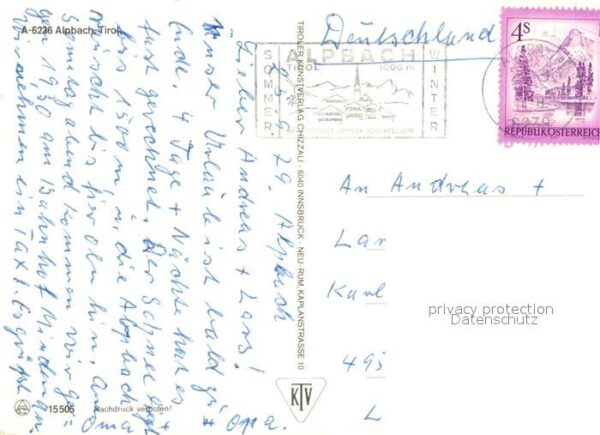 A-6236 Alpbach, Tirol
79. Alpbach
Lieber Andreas + Lars!
Unser Urlaub ist bald zu
Ende. 4 Tage + Nächte hat es
fast geregnet. Der Schnee liegt
bis 1500 m in die Alpbach
bis hin. Am
Sonnabend kommen wir ge-
gen 19 30 am Bahnhof Minden an.
Wir nehmen ein Taxi. Es grüßt
Oma
+ Opa.
15505
Nachdruck verboten!
TIROLER KUNSTVERLAG CHIZZALI · 6040 INNSBRUCK - NEU-RUM, KAPLANSTRASSE 10
KTV
Deutschland
SOMMER
ALPBACH
TIROL 1000 m
WINTER
4S
REPUBLIK ÖSTERREICH
An Andreas +
Lar
Karl
495
L
privacy protection
Datenschutz